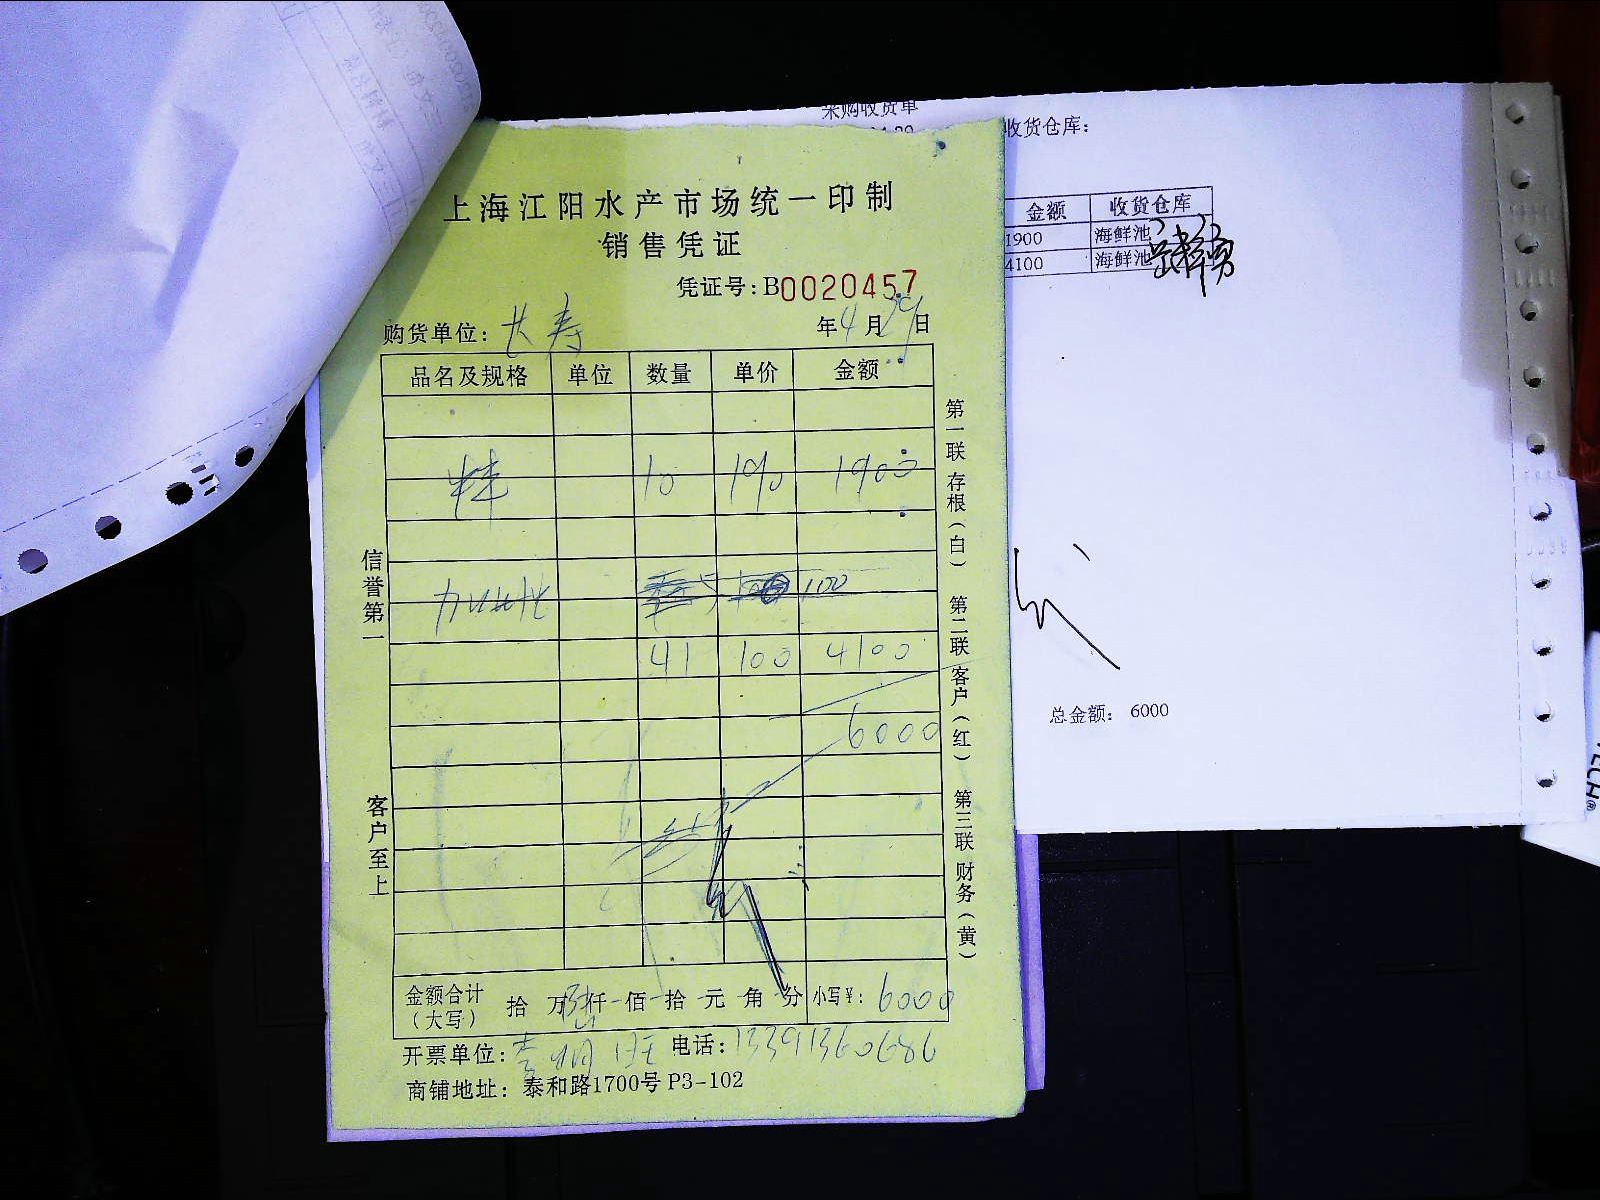 采购收货单
收货仓库：
金额 收货仓库
1900 海鲜池
4100 海鲜池
总金额： 6000
上海江阳水产市场统一印制
销售凭证
凭证号：B0020457
购货单位：长寿 年4月29日
品名及规格 单位 数量 单价 金额
10 190 1900
100
41 100 4100
6000
金额合计（大写） 拾 万 仟 佰 拾 元 角 分 小写¥：6000
开票单位： 电话：13391360686
商铺地址：泰和路1700号 P3-102
信誉第一
客户至上
第一联 存根（白） 第二联 客户（红） 第三联 财务（黄）